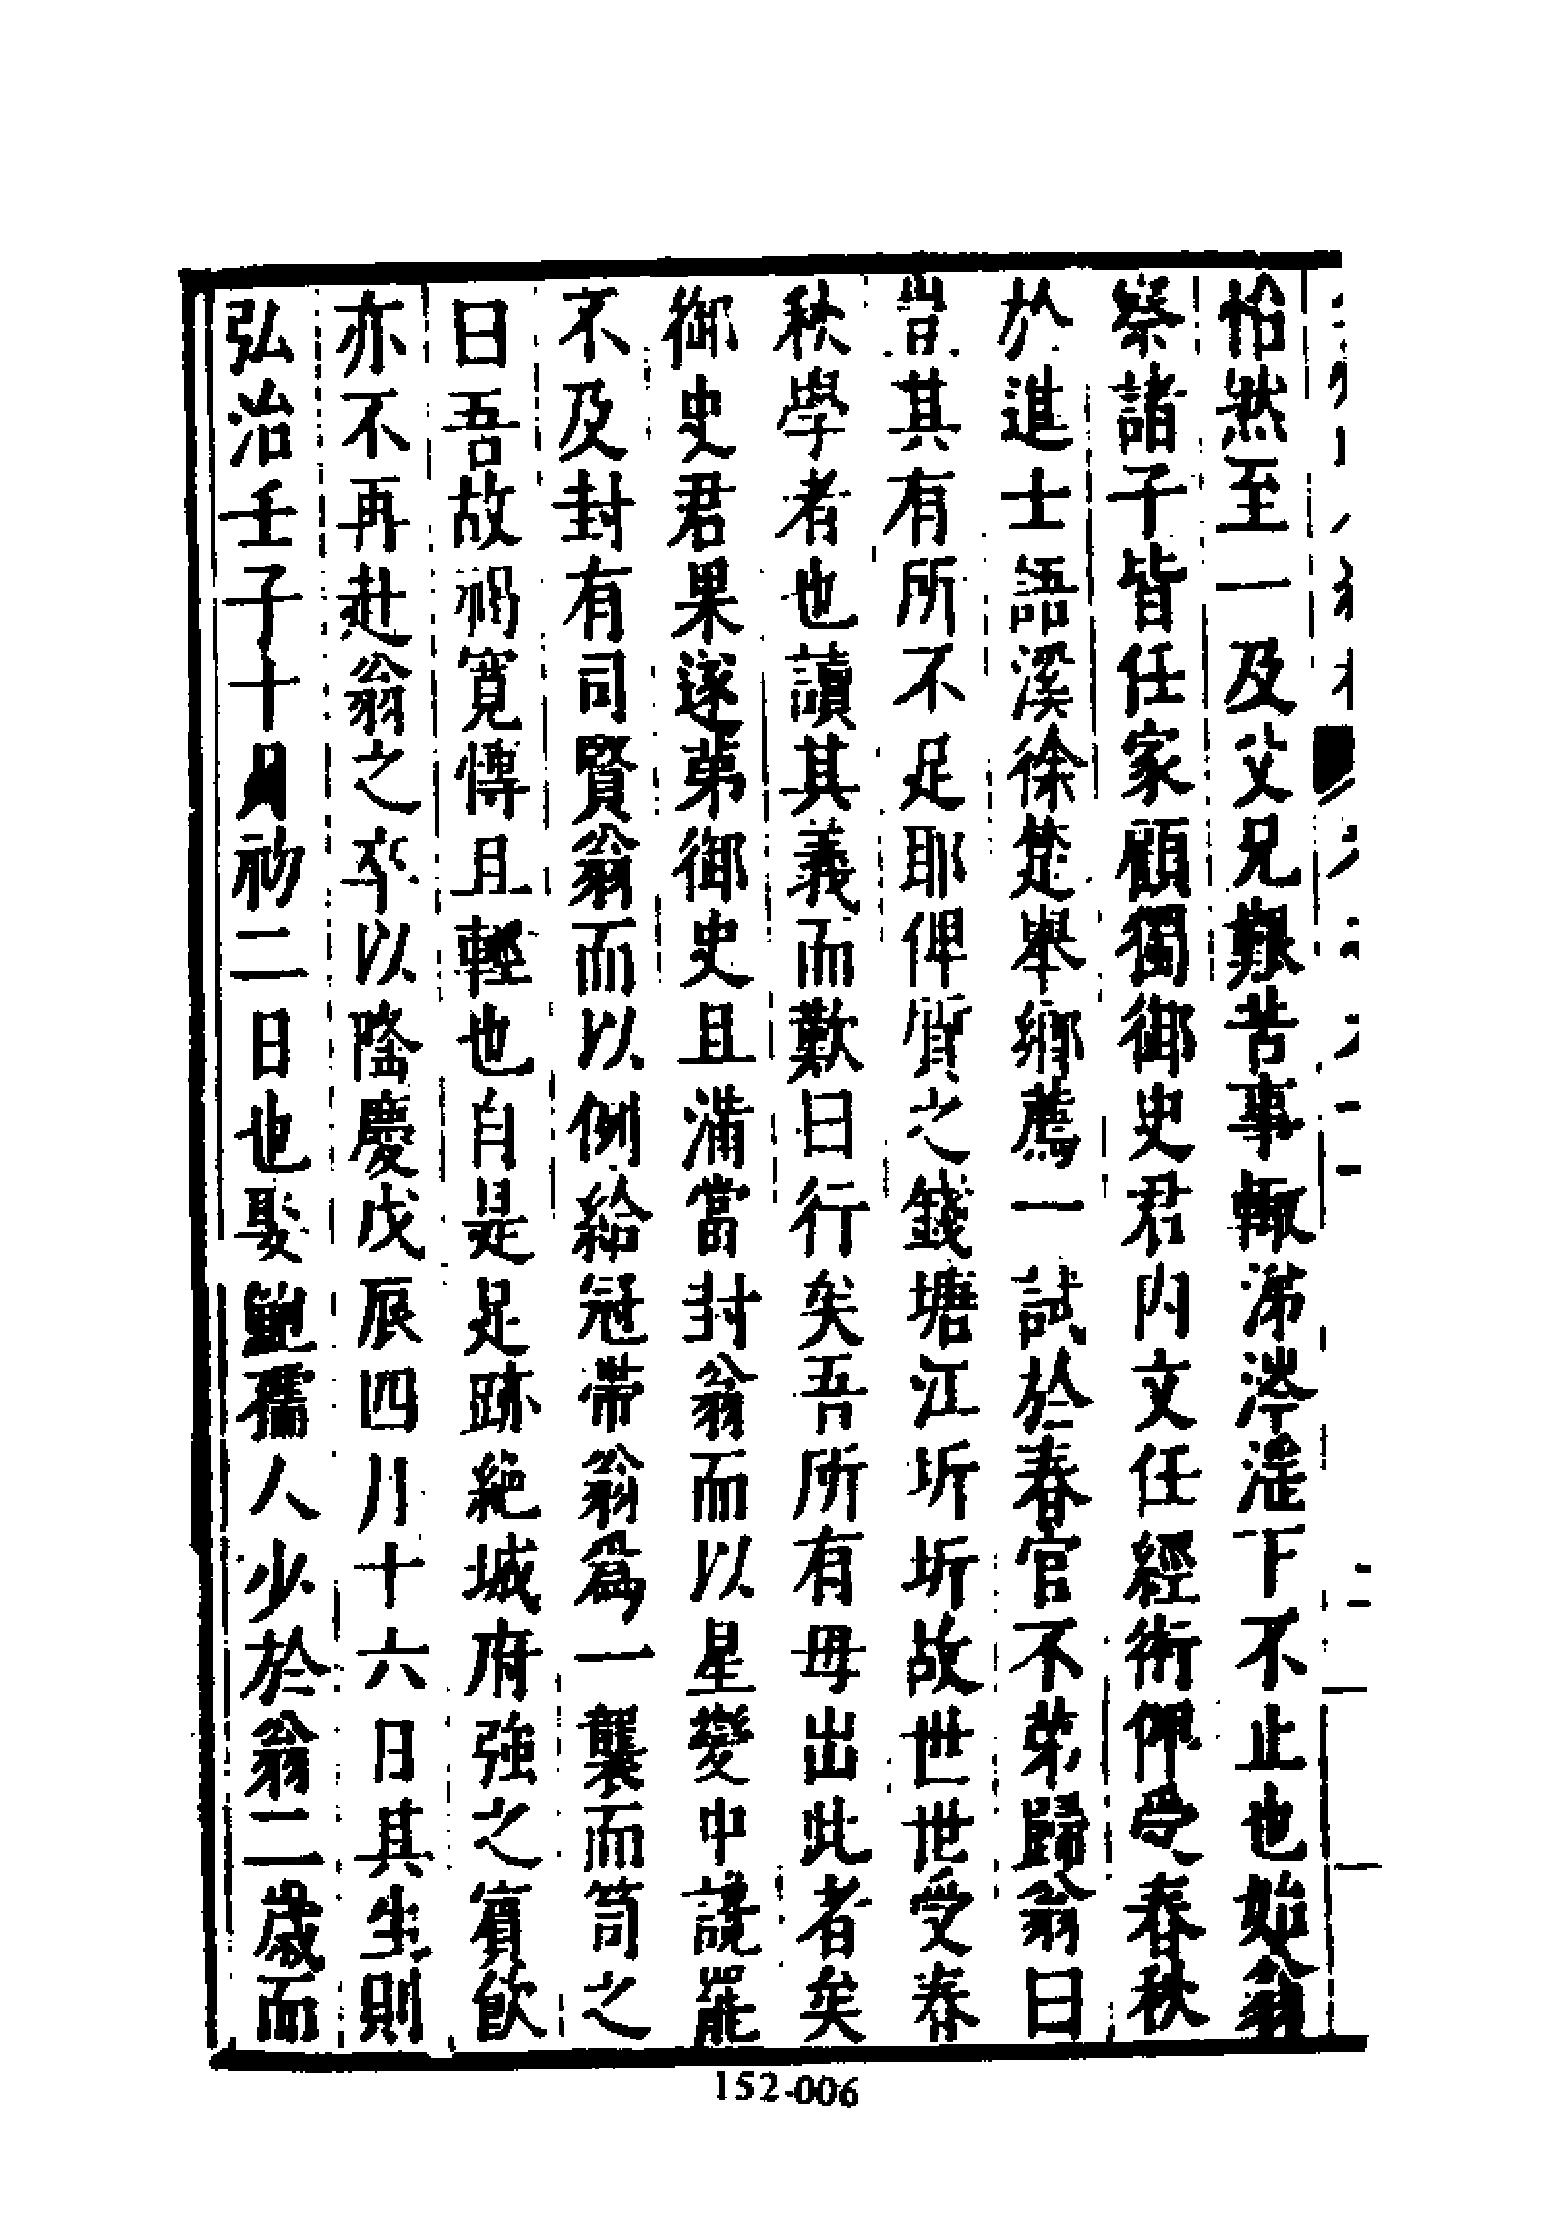 怡然至一及父兄艱苦事輙涕涔淫下不止也始翁
察諸子皆任家顧獨御史君内文任經術俾受春秋
於進士語溪徐楚舉鄉薦一試於春官不弟歸翁曰
豈其有所不足耶俾質之錢塘江圻圻故世世受春
秋學者也讀其義而歎曰行矣吾所有毋出此者矣
御史君果遂弟御史且滿當封翁而以星變中讒罷
不及封有司賢翁而以例給冠帶翁爲一襲而笥之
曰吾故褐寛愽且輕也自是足跡絶城府強之賓飲
亦不再赴翁之卒以隆慶戊辰四月十六日其生則
弘治壬子十月初二日也娶鮑孺人少於翁二歲而
152-006